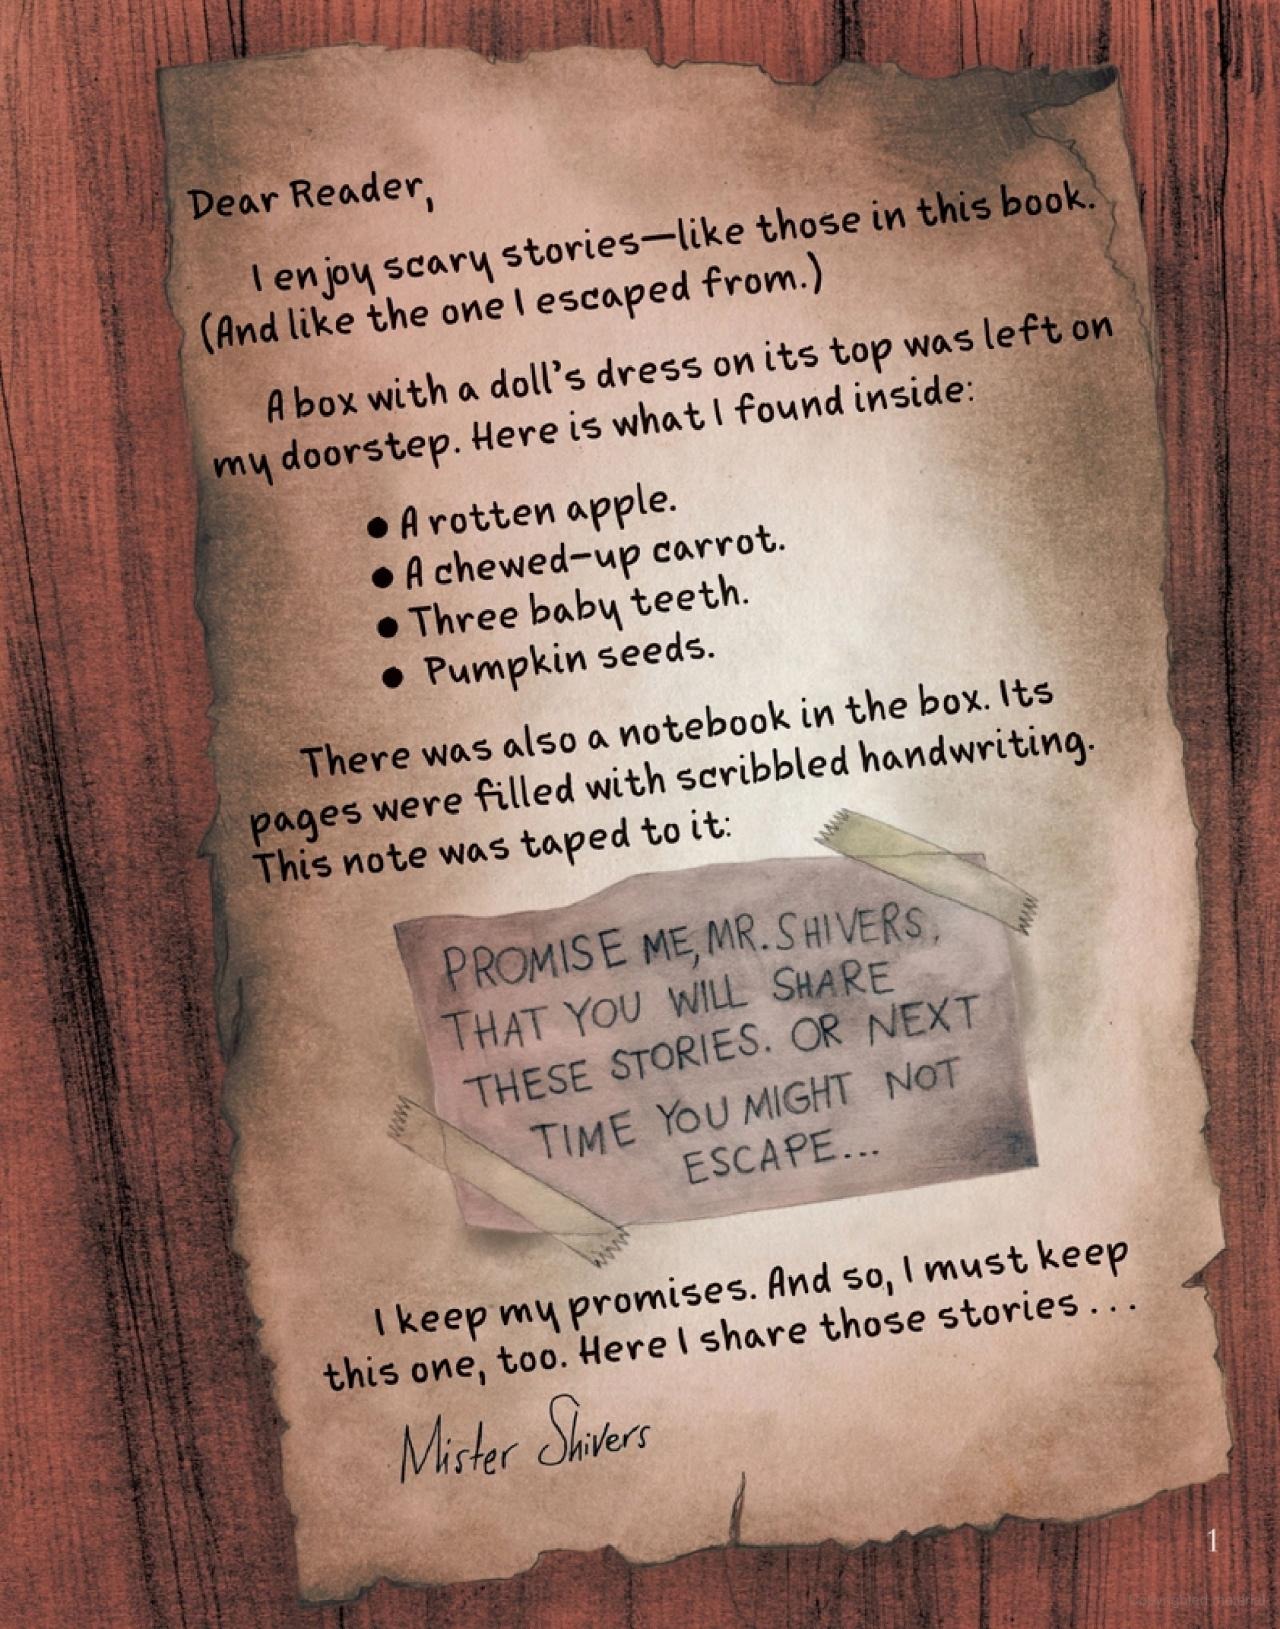 Dear Reader,
I enjoy scary stories—like those in this book.
(And like the one I escaped from.)
A box with a doll's dress on its top was left on
my doorstep. Here is what I found inside:
● A rotten apple.
● A chewed-up carrot.
● Three baby teeth.
● Pumpkin seeds.
There was also a notebook in the box. Its
pages were filled with scribbled handwriting.
This note was taped to it:
PROMISE ME, MR. SHIVERS,
THAT YOU WILL SHARE
THESE STORIES. OR NEXT
TIME YOU MIGHT NOT
ESCAPE...
I keep my promises. And so, I must keep
this one, too. Here I share those stories . . .
Mister Shivers
1
Copyrighted material